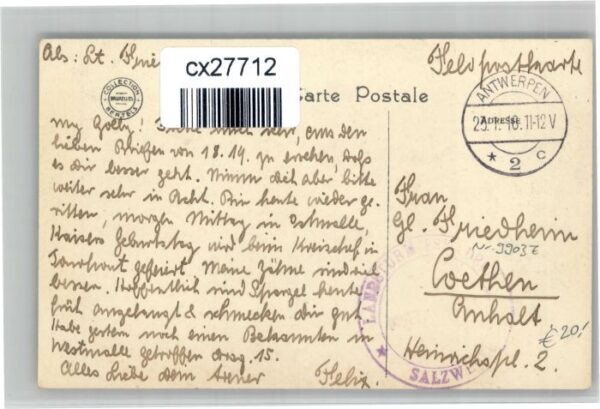 Abs: Lt. Frie
cx27712
Feldpostkarte
COLLECTION
BERTELS
Carte Postale
ADRESSE
ANTWERPEN
25. 1. 16. 11-12 V
* 2 c
my Goldy! Freue mich sehr, aus den
lieben Briefen von 18. 19. zu ersehen, daß
es dir besser geht. Nimm dich aber bitte
weiter sehr in Acht. Bin heute wieder ge-
ritten, morgen Mittag in
Kaisers Geburtstag wird beim Kreischef in
Turnhout gefeiert. Meine Zähne sind viel
besser. Hoffentlich sind Spargel heute
früh angelangt & schmecken dir gut.
Habe gestern noch einen Bekannten in
Westmalle getroffen 15.
Alles Liebe Dein
Felix.
Frau
Gl. Friedheim
Nr. 9903Z
Coethen
Anhalt
Heinrichspl. 2.
€ 20,-
LANDSTURM
SALZWE